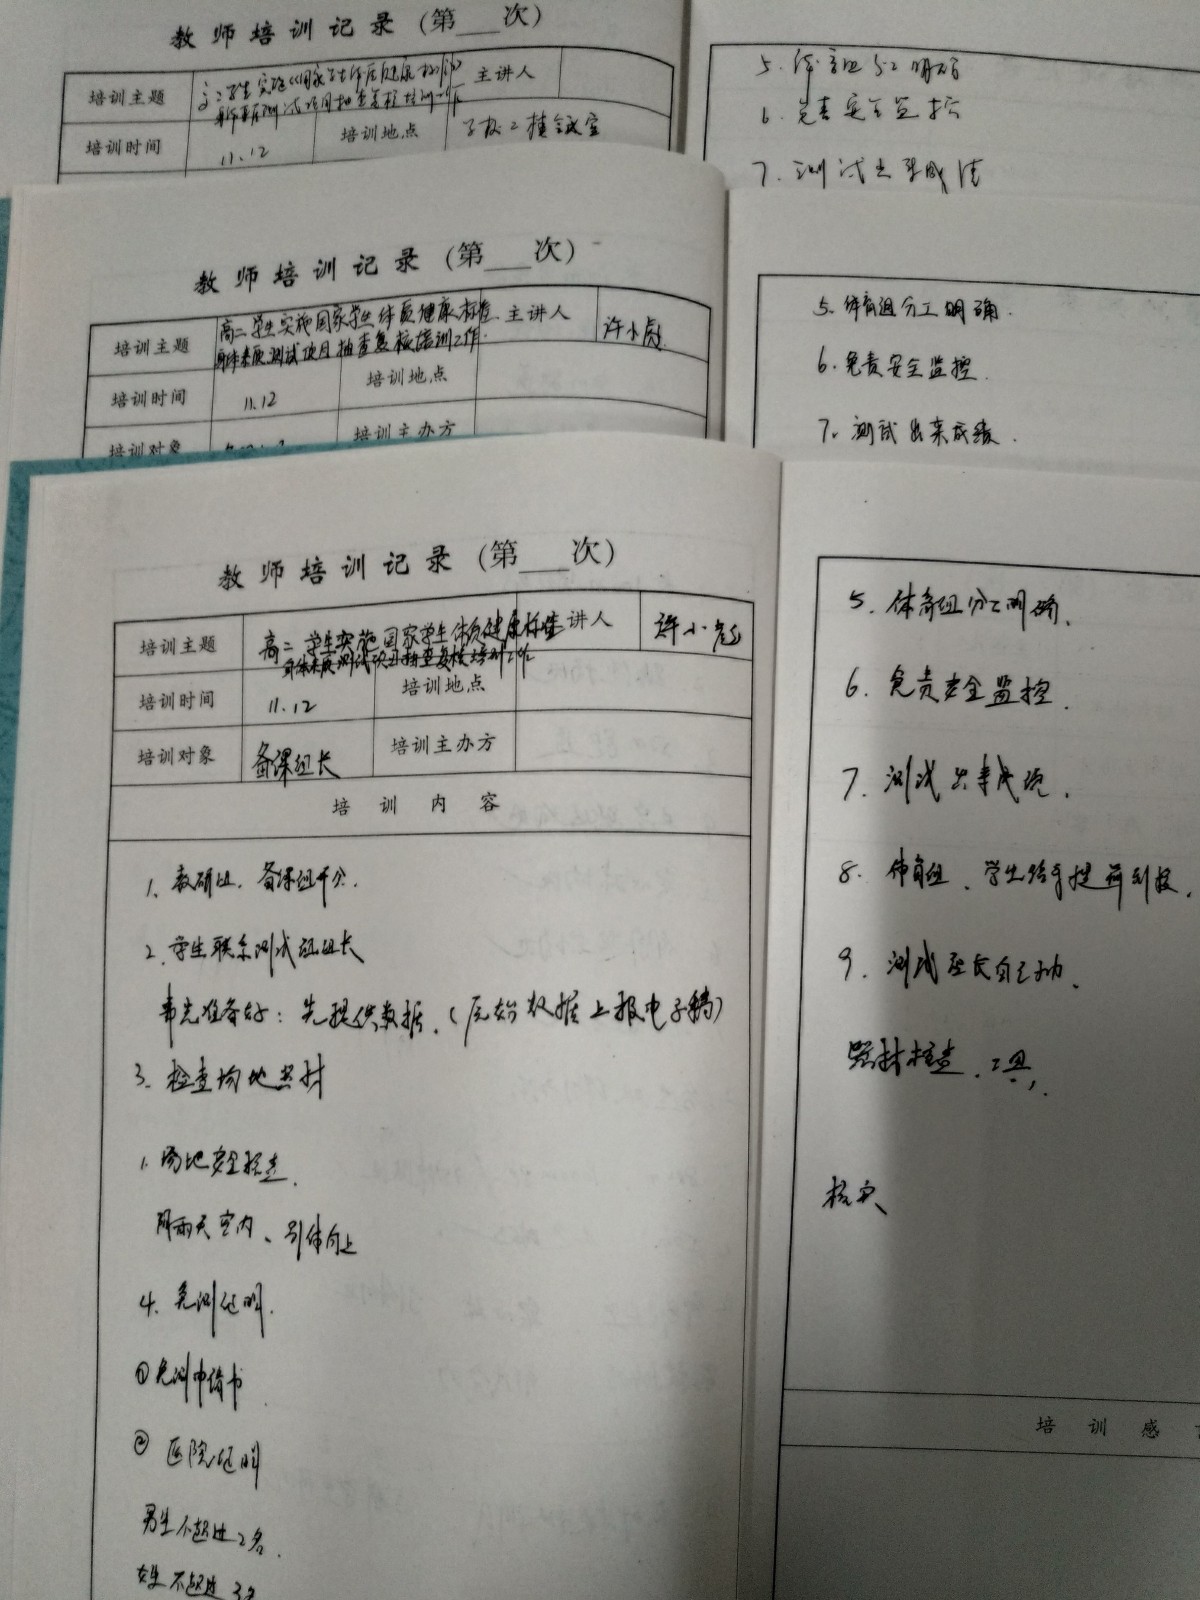 教师培训记录（第___次）
培训主题 主讲人
培训时间 11.12 培训地点
5.
6. 免责安全监控
7. 测试出来成绩
教师培训记录（第___次）
培训主题 高二学生实施国家学生体质健康标准 主讲人 许小
身体素质测试项目抽查复核培训工作.
培训时间 11.12 培训地点
培训对象 培训主办方
5. 体育组分工明确.
6. 免责安全监控.
7. 测试出来成绩.
教师培训记录（第___次）
培训主题 高二学生实施国家学生体质健康标准 讲人 许小
身体素质测试项目抽查复核培训工作
培训时间 11.12 培训地点
培训对象 备课组长 培训主办方
培训内容
1. 教研组、备课组
2. 学生联系测试组组长
事先准备好：先提供数据.（原始数据上报电子稿）
3. 检查场地器材
1. 场地安全检查.
阴雨天室内、引体向上
4. 免测证明.
①免测申请书.
② 医院证明
男生不超过2名.
女生不超过3名
5. 体育组分工明确.
6. 免责安全监控.
7. 测试出来成绩.
8. 体育组、学生
9. 测试
器材检查、工具,
核实
培训感